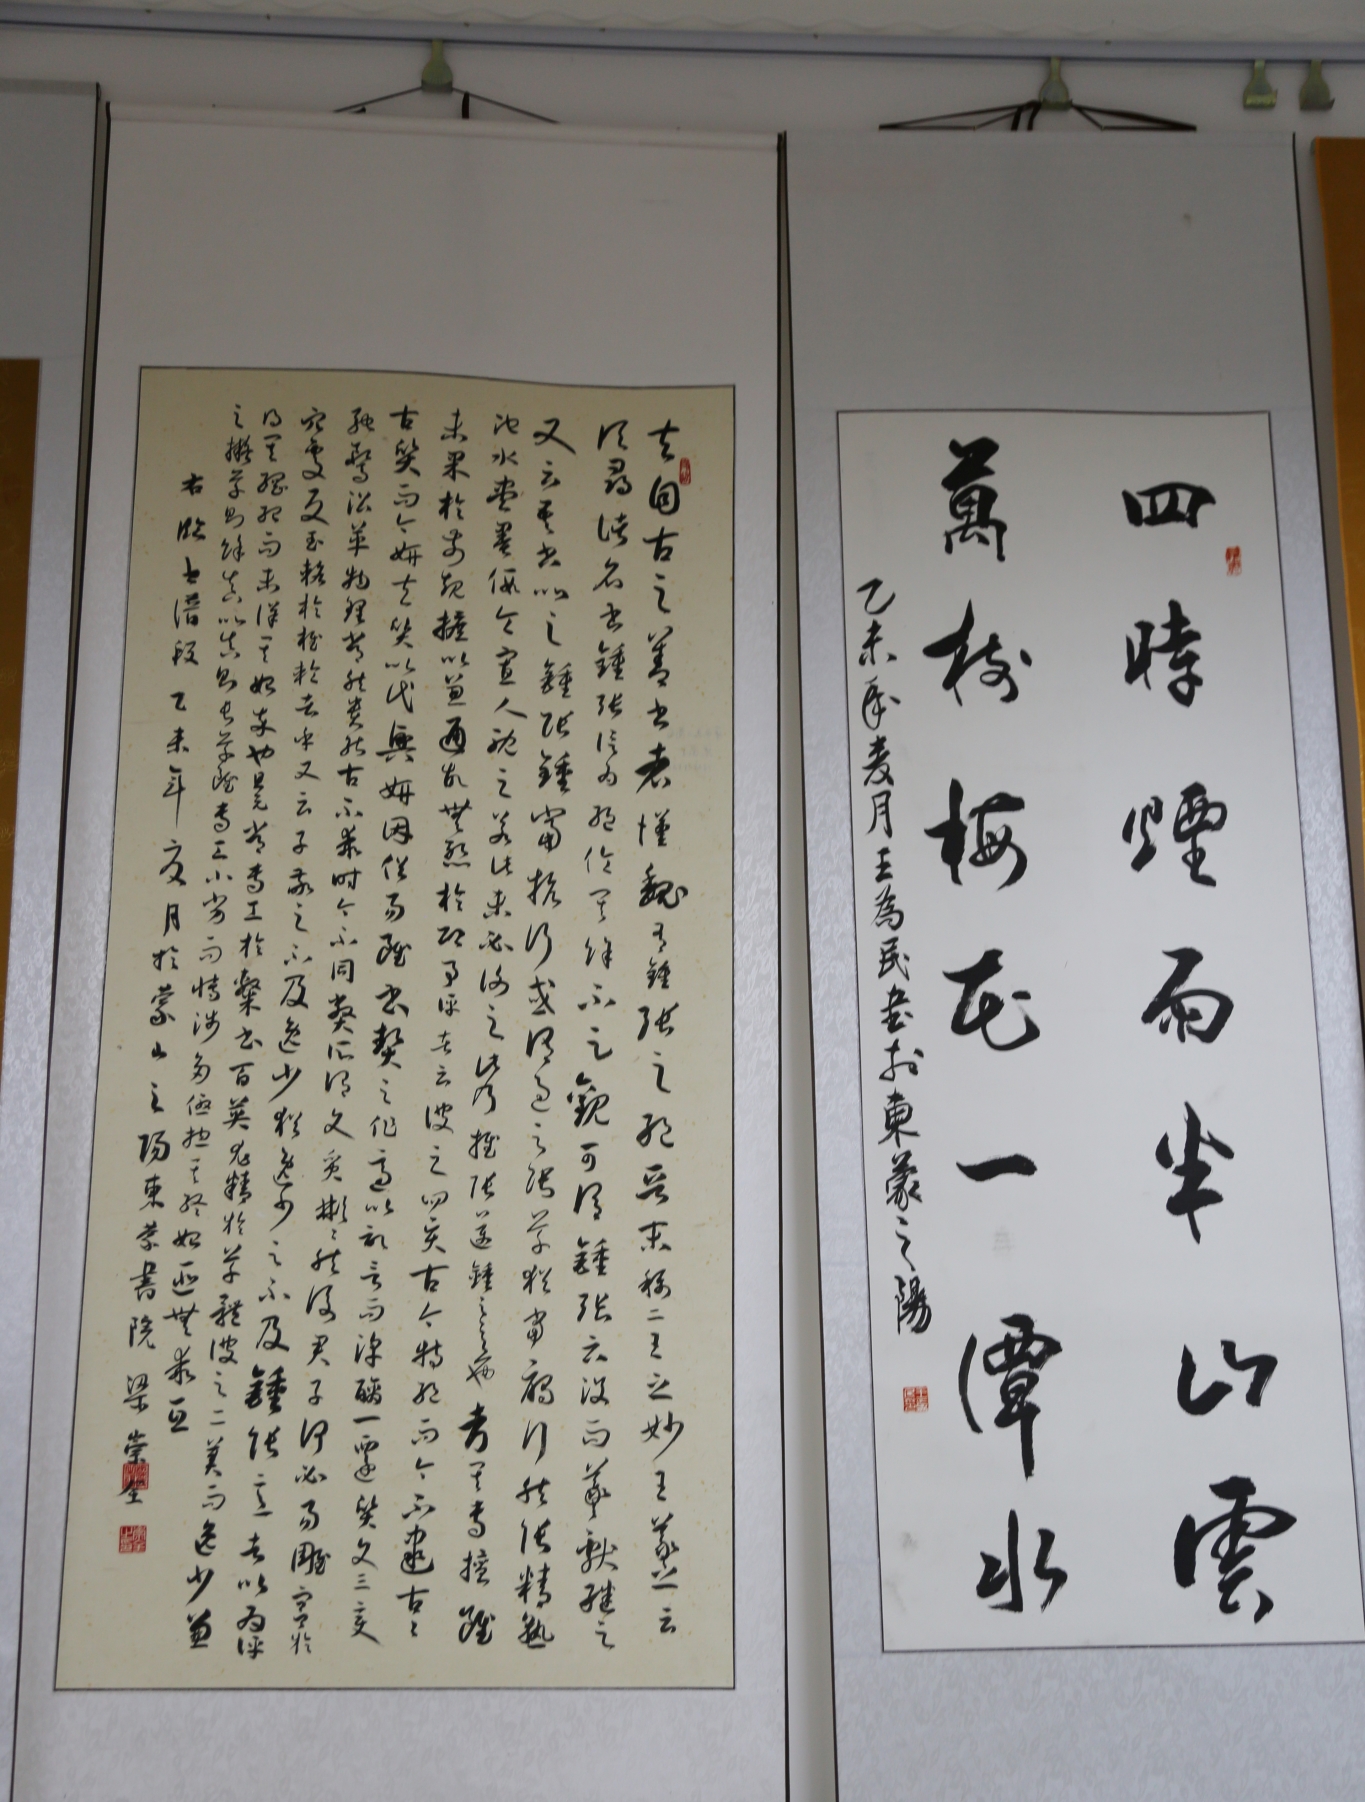 四時煙雨半山雲
萬樹梅花一潭水
乙未年夏月王為民書於東蒙之陽
夫自古之善書者漢魏有鍾張之絕晉末稱二王之妙王羲之云
頃尋諸名書鍾張信為絕倫其餘不足觀可謂鍾張云沒而羲獻繼之
又云吾書比之鍾張鍾當抗行或謂過之張草猶當雁行然張精熟
池水盡墨假令寡人耽之若此未必謝之此乃推張邁鍾之意也考其專擅雖
未果於前規摭以兼通故無慚於即事評者云彼之四賢古今特絕而今不逮古〻
古質而今妍夫質以代興妍因俗易雖書契之作適以記言而淳醨一遷質文三變
馳騖沿革物理常然貴能古不乖時今不同弊所謂文質彬〻然後君子何必易雕宮於
穴處反玉輅於椎輪者乎又云子敬之不及逸少猶逸少之不及鍾張意者以為評
得其綱紀而未詳其始卒也且元常專工於隸書百英尤精於草體彼之二美而逸少兼
之擬草則餘真比真則長草雖專工小劣而博涉多優總其終始匪無乖互
右臨書譜一段 乙未年夏月於蒙山之陽東蒙書院 梁崇